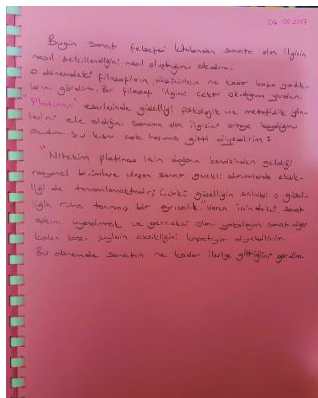 06.03.2017
Bugün sanat felsefesi kitabından sanata olan ilginin
nasıl şekillendiğini nasıl oluştuğunu okudum.
O dönemdeki filozofların düşünürlerin ne kadar kafa yorduk-
larını gördüm. Bir filozof ilgimi çekti okuduğum yerden.
"Platinus" eserlerinde güzelliği psikolojik ve metafizik yön-
lerini ele aldığını sanata olan ilgisini ortaya koyduğunu
okudum. Bu kısım çok hoşuma gitti diyebilirim :
"Nitekim platinas için doğanın kendisinden geldiği
rasyonel biçimlere ulaşan sanat güzeli durumlarda eksik-
liği de tamamlamaktadır; Çünkü güzelliğin sahibi o güzel-
liğin ona tanınmış bir ayrıcalık veren içindeki sanat
aşkını uyandırmak ve gerçekçi olanı yakalayan sanat diğer
bazı şeylerin eksikliğini kapatıyor diyebilirim.
Bu dönemde sanatın ne kadar ileriye gittiğini gördüm.